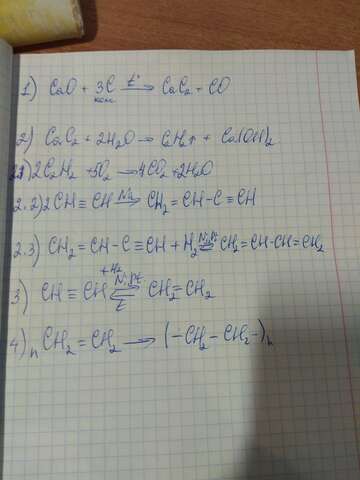 1) CaO + 3C кокс t° → CaC₂ + CO
2) CaC₂ + 2H₂O → C₂H₂↑ + Ca(OH)₂
2.1) 2C₂H₂ + 5O₂ → 4CO₂ + 2H₂O
2.2) 2CH ≡ CH → CH₂ = CH - C ≡ CH
2.3) CH₂ = CH - C ≡ CH + H₂ Ni,Pt ⇄ CH₂ = CH - CH = CH₂
3) CH ≡ CH +H₂ Ni,Pt ⇄ t CH₂ = CH₂
4) n CH₂ = CH₂ → (- CH₂ - CH₂ -)n